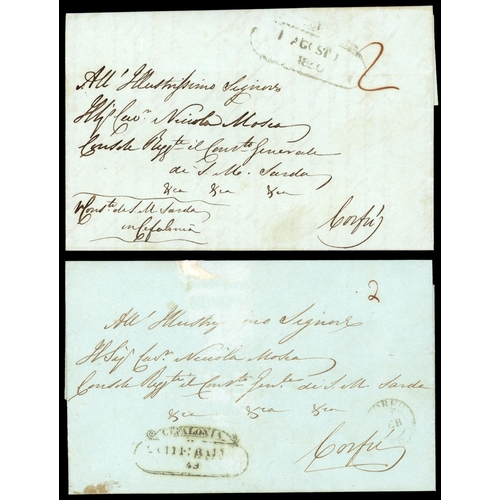 1 AGOSTO
2
All' Illustrissimo Signore
Il Sig Cav.r Niccola Mosca
Console Regg.te il Cons.to Generale
di S. M. Sarda
&ca &ca &ca
Cons.to di S. M. Sarda
in Cefalonia
Corfù
2
All' Illustr mo Signore
Il Sig Cav.r Niccola Mosca
Console Regg.te il Cons.to Gen.le di S. M. Sarda
&ca &ca &ca
CEFALONIA
49
Corfù